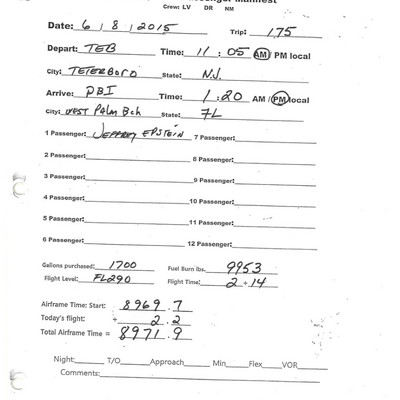 Passenger Manifest
Crew: LV DR NM
Date: 6 / 8 / 2015 Trip: 175
Depart: TEB Time: 11 : 05 AM / PM local
City: TETERBORO State: N.J.
Arrive: PBI Time: 1 : 20 AM / PM local
City: WEST PALM Bch State: FL
1 Passenger: JEFFREY EPSTEIN 7 Passenger:
2 Passenger: 8 Passenger:
3 Passenger: 9 Passenger:
4 Passenger: 10 Passenger:
5 Passenger: 11 Passenger:
6 Passenger: 12 Passenger:
Gallons purchased: 1700 Fuel Burn lbs. 9953
Flight Level: FL290 Flight Time: 2 + 14
Airframe Time: Start: 8969.7
Today's flight: + 2.2
Total Airframe Time = 8971.9
Night: T/O Approach Min Flex VOR
Comments: